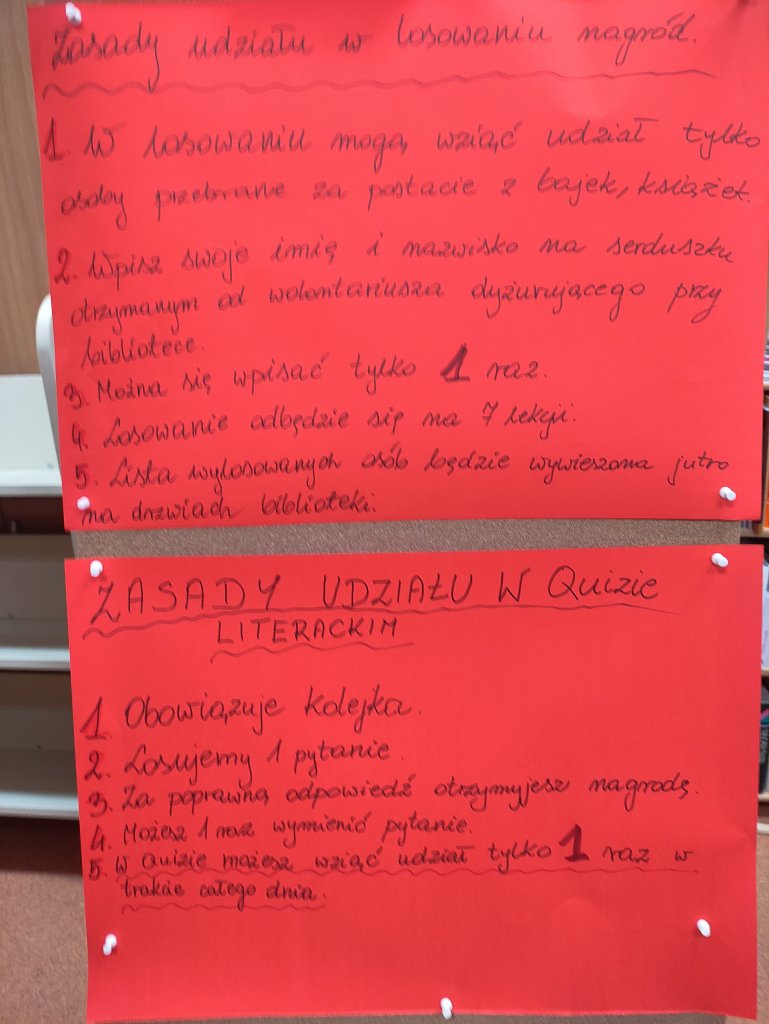 Zasady udziału w losowaniu nagród.
1. W losowaniu mogą wziąć udział tylko
osoby przebrane za postacie z bajek, książek.
2. Wpisz swoje imię i nazwisko na serduszku
otrzymanym od wolontariusza dyżurującego przy
bibliotece.
3. Można się wpisać tylko 1 raz.
4. Losowanie odbędzie się na 7 lekcji.
5. Lista wylosowanych osób będzie wywieszona jutro
na drzwiach biblioteki.
ZASADY UDZIAŁU W Quizie
LITERACKIM
1. Obowiązuje kolejka.
2. Losujemy 1 pytanie.
3. Za poprawną odpowiedź otrzymyjesz nagrodę.
4. Możesz 1 raz wymienić pytanie.
5. W Quizie możesz wziąć udział tylko 1 raz w
trakcie całego dnia.